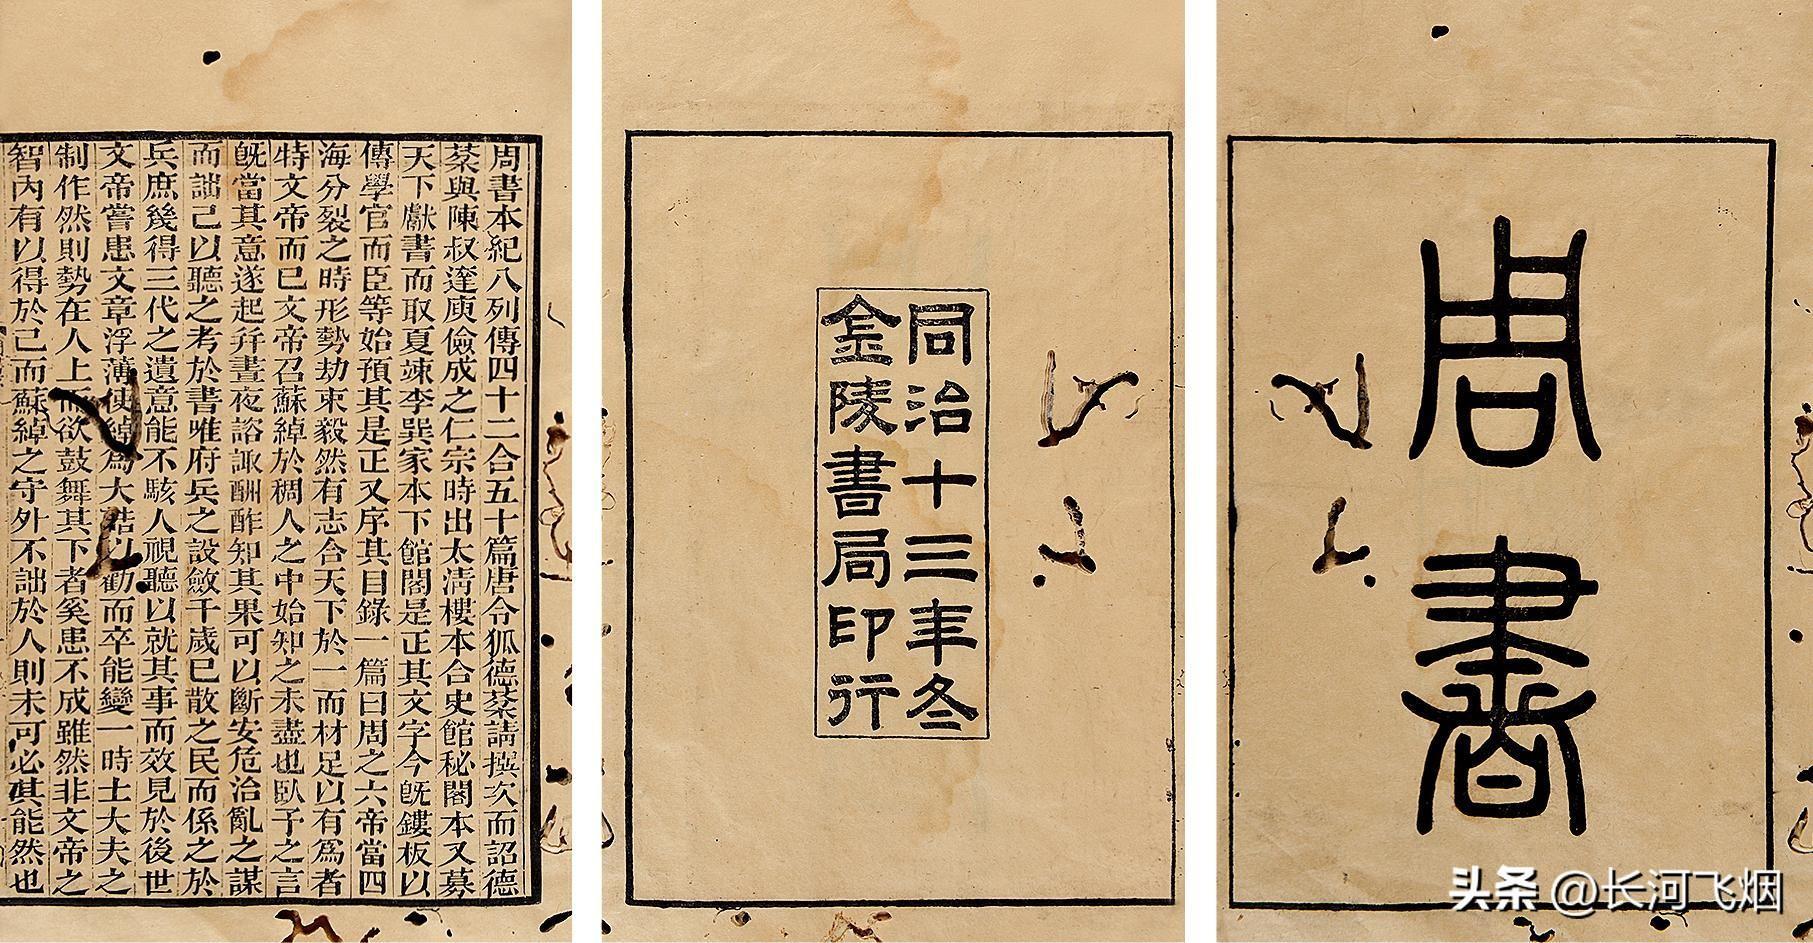 周書
同治十三年冬
金陵書局印行
周書本紀八列傳四十二合五十篇唐令狐德棻請撰次而詔德
棻與陳叔達庾儉成之仁宗時出太淸樓本合史館秘閣本又募
天下獻書而取夏竦李巽家本下館閣是正其文字今旣鏤板以
傳學官而臣等始預其是正又序其目錄一篇曰周之六帝當四
海分裂之時形勢劫束毅然有志合天下於一而材足以有爲者
特文帝而已文帝召蘇綽於稠人之中始知之未盡也臥予之言
旣當其意遂起幷晝夜諮諏酬酢知其果可以斷安危治亂之謀
而詘己以聽之考於書唯府兵之設斂千歲已散之民而係之於
兵庶幾得三代之遺意能不駭人視聽以就其事而效見於後世
文帝嘗患文章浮薄使綽爲大誥以勸而卒能變一時士大夫之
制作然則勢在人上而欲鼓舞其下者奚患不成雖然非文帝之
智內有以得於己而蘇綽之守外不詘於人則未可必其能然也
头条 @长河飞烟